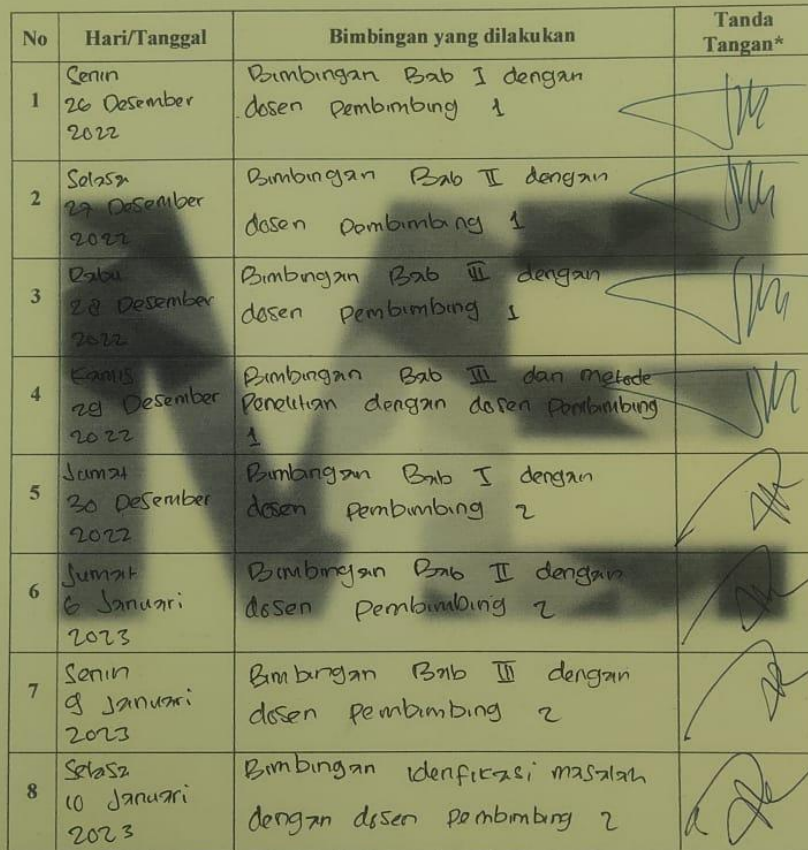 No Hari/Tanggal Bimbingan yang dilakukan Tanda Tangan*
1
Senin
26 Desember
2022
Bimbingan Bab I dengan
dosen Pembimbing 1
2
Selasa
27 Desember
2022
Bimbingan Bab II dengan
dosen Pembimbing 1
3
Rabu
28 Desember
2022
Bimbingan Bab III dengan
dosen Pembimbing 1
4
Kamis
29 Desember
2022
Bimbingan Bab III dan metode
Penelitian dengan dosen Pembimbing
1
5
Jumat
30 Desember
2022
Bimbingan Bab I dengan
dosen Pembimbing 2
6
Jumat
6 Januari
2023
Bimbingan Bab II dengan
dosen Pembimbing 2
7
Senin
9 Januari
2023
Bimbingan Bab III dengan
dosen Pembimbing 2
8
Selasa
10 Januari
2023
Bimbingan idenfikasi masalah
dengan dosen Pembimbing 2